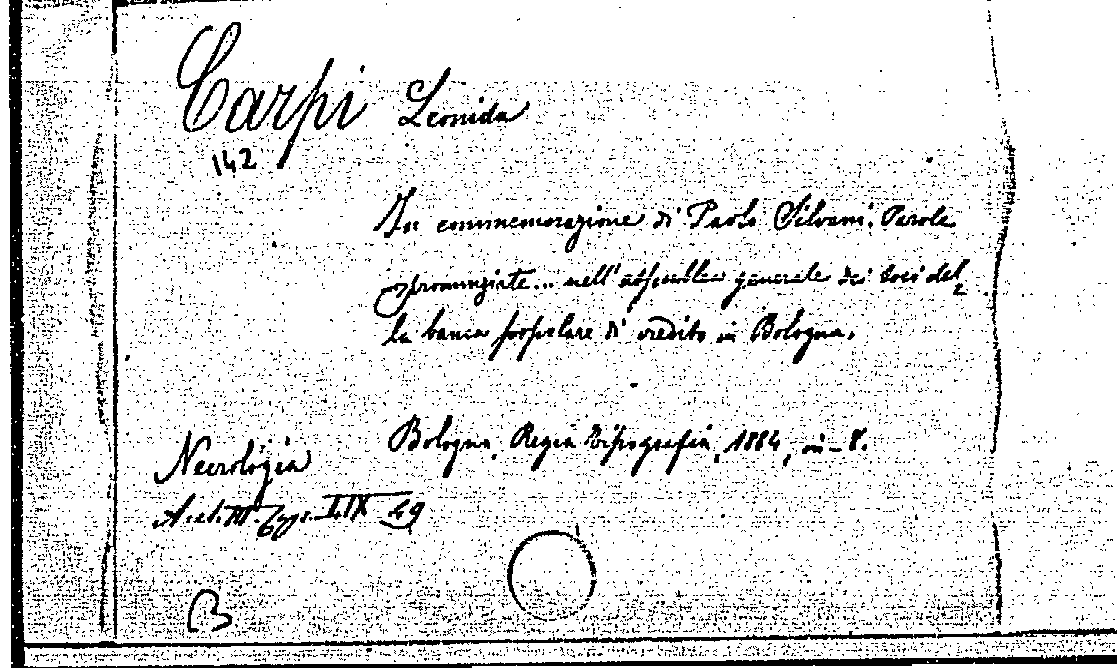 Carpi Leonida
142
In commemorazione di Paolo Silvani. Parole
pronunziate... nell'assemblea generale dei soci del
la banca popolare di credito in Bologna.
Bologna, Regia Tipografia, 1884, in-8.
Necrologia
49
B